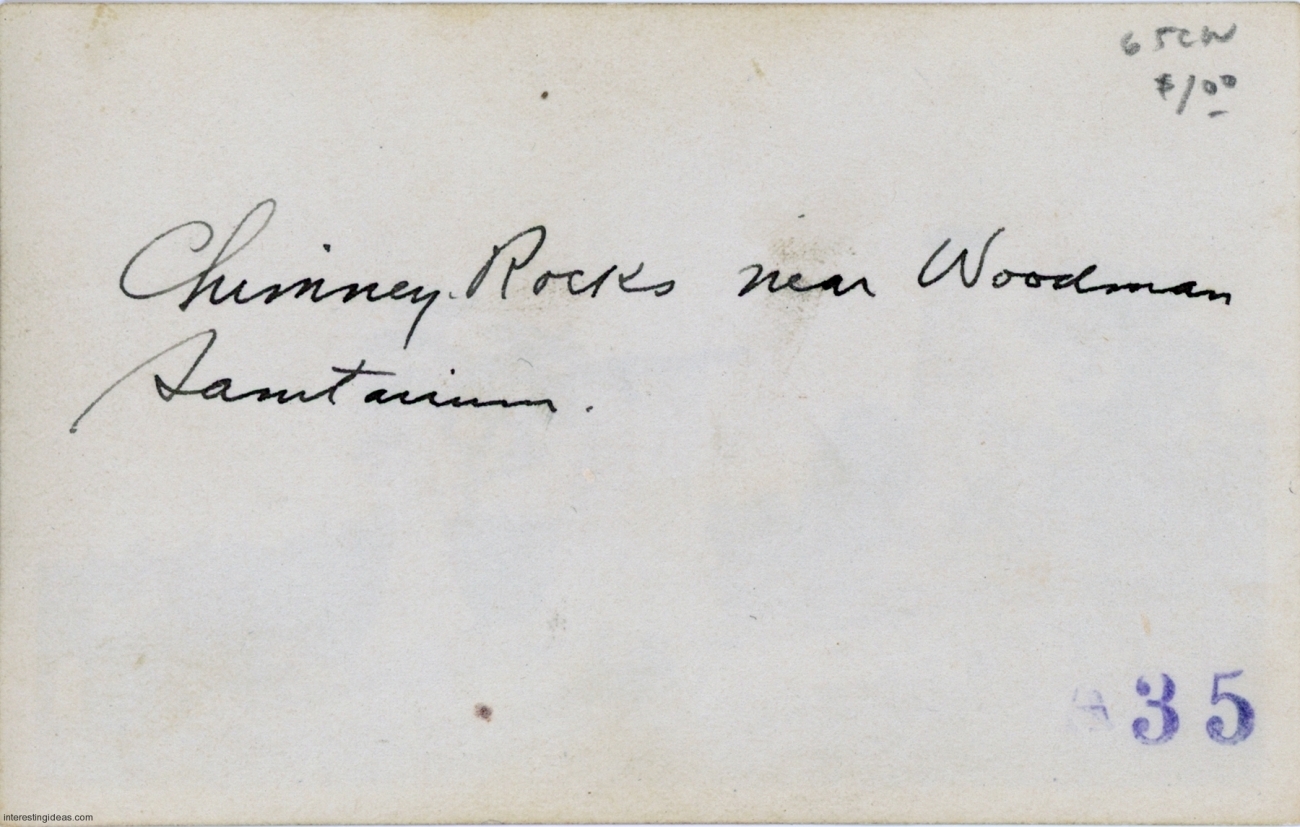 65CW
$1.00
Chimney Rocks near Woodman
Sanitarium.
35
interestingideas.com